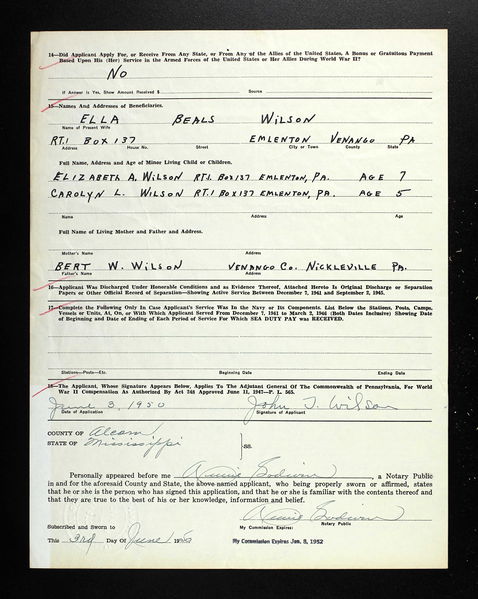 14—Did Applicant Apply For, or Receive From Any State, or From Any of the Allies of the United States, A Bonus or Gratuitous Payment
Based Upon His (Her) Service in the Armed Forces of the United States or Her Allies During World War II?
No
If Answer is Yes, Show Amount Received $ Source
15—Names and Addresses of Beneficiaries.
ELLA BEALS WILSON
Name of Present Wife
RT.1 BOX 137 EMLENTON VENANGO PA
Address House No. Street City or Town County State
Full Name, Address and Age of Minor Living Child or Children.
ELIZABETH A. WILSON RT.1. BOX 137 EMLENTON, PA. AGE 7
CAROLYN L. WILSON RT.1 BOX 137 EMLENTON, PA. AGE 5
Name Address Age
Full Name of Living Mother and Father and Address.
Mother's Name Address
BERT W. WILSON VENANGO CO. NICKLEVILLE PA.
Father's Name Address
16—Applicant Was Discharged Under Honorable Conditions and as Evidence Thereof, Attached Hereto Is Original Discharge or Separation
Papers or Other Official Record of Separation—Showing Active Service Between December 7, 1941 and September 2, 1945.
17—Complete the Following Only In Case Applicant's Service Was In the Navy or Its Components. List Below the Stations, Posts, Camps,
Vessels or Units, At, On, or With Which Applicant Served From December 7, 1941 to March 2, 1946 (Both Dates Inclusive) Showing Date
of Beginning and Date of Ending of Each Period of Service For Which SEA DUTY PAY was RECEIVED.
Stations—Posts—Etc. Beginning Date Ending Date
18—The Applicant, Whose Signature Appears Below, Applies To The Adjutant General Of The Commonwealth of Pennsylvania, For World
War II Compensation As Authorized By Act 748 Approved June 11, 1947—P. L. 565.
June 3, 1950 John T. Wilson
Date of Application Signature of Applicant
COUNTY OF Alcorn
STATE OF Mississippi
-ss.
Personally appeared before me Annie Godwin, a Notary Public
in and for the aforesaid County and State, the above named applicant, who being properly sworn or affirmed, states
that he or she is the person who has signed this application, and that he or she is familiar with the contents thereof and
that they are true to the best of his or her knowledge, information and belief.
Annie Godwin
Subscribed and Sworn to My Commission Expires: Notary Public
This 3rd Day Of June 1950 My Commission Expires Jan. 8, 1952